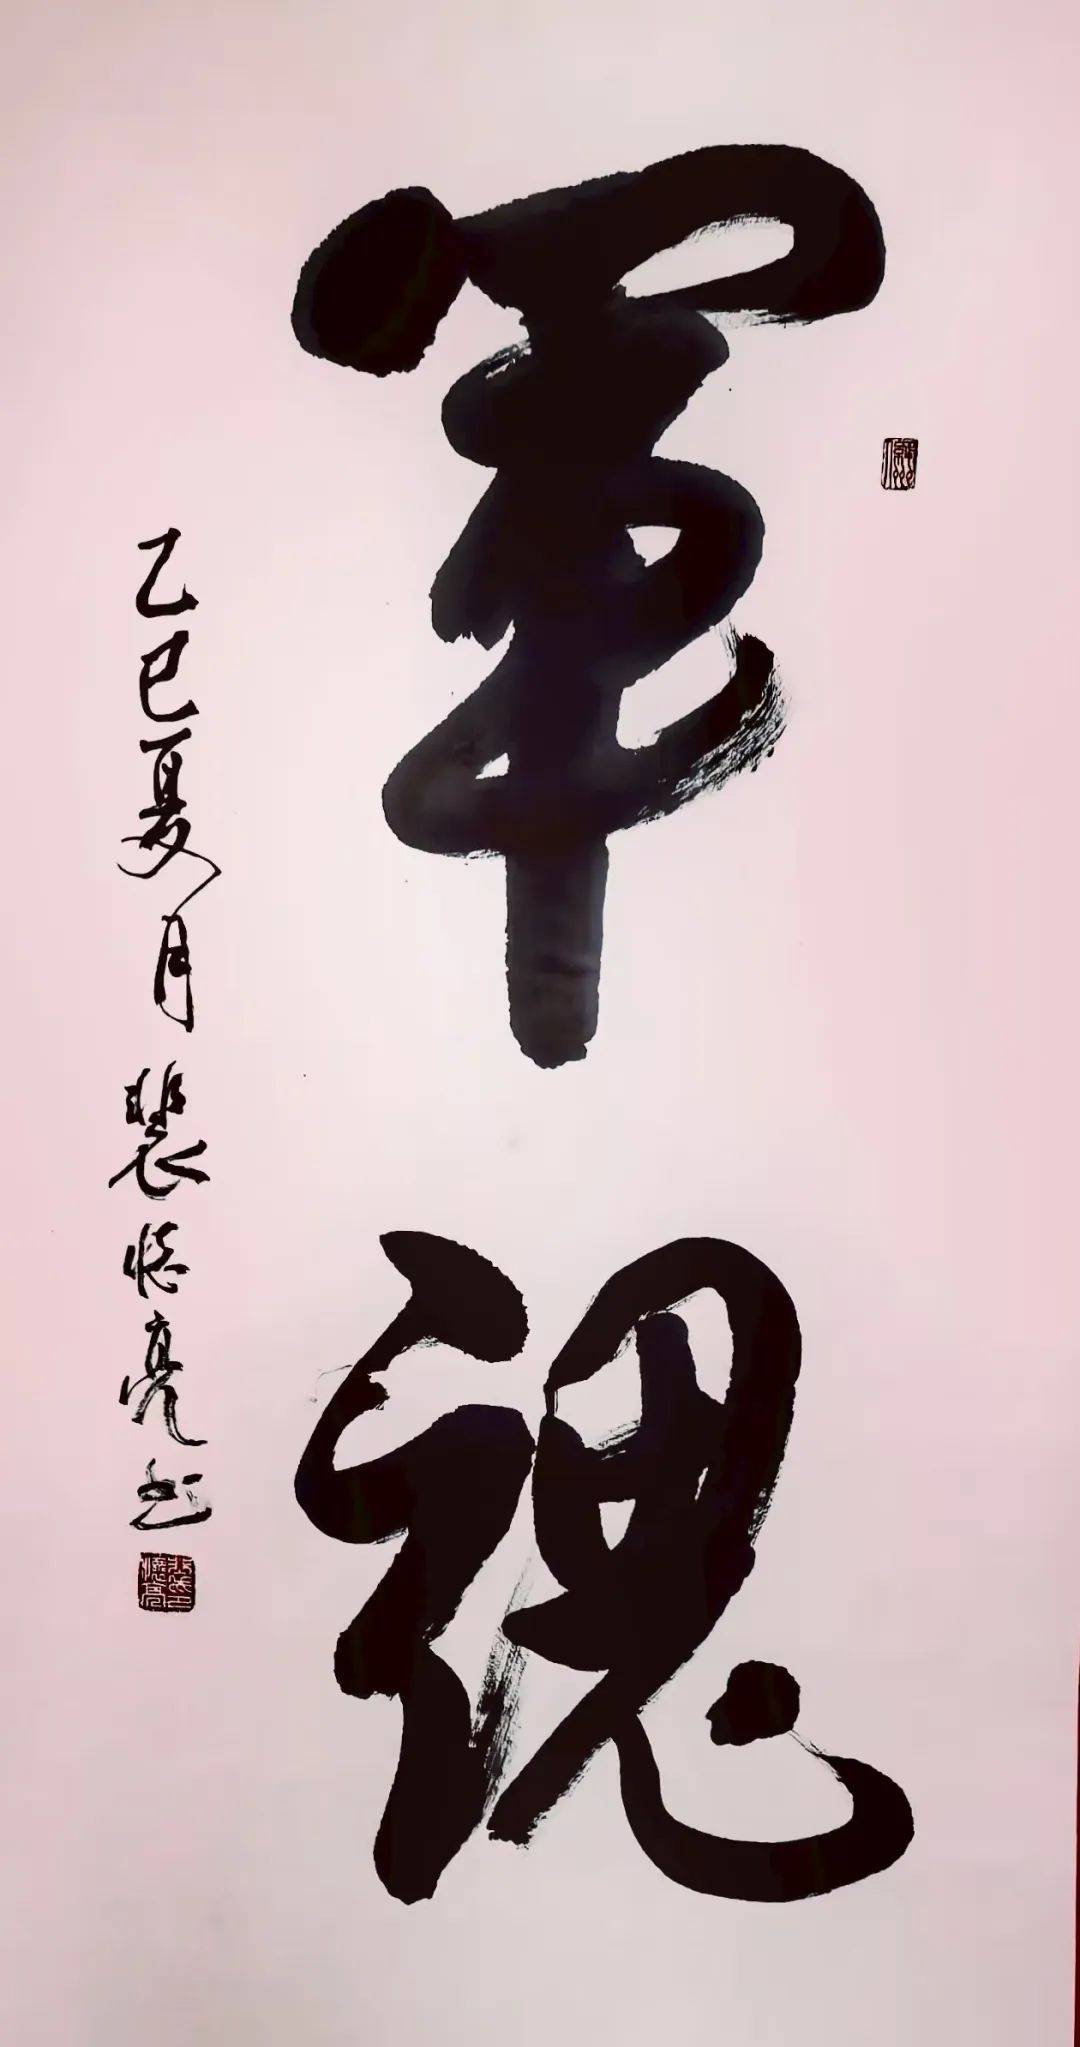 軍魂
乙巳夏月裴憶亮书